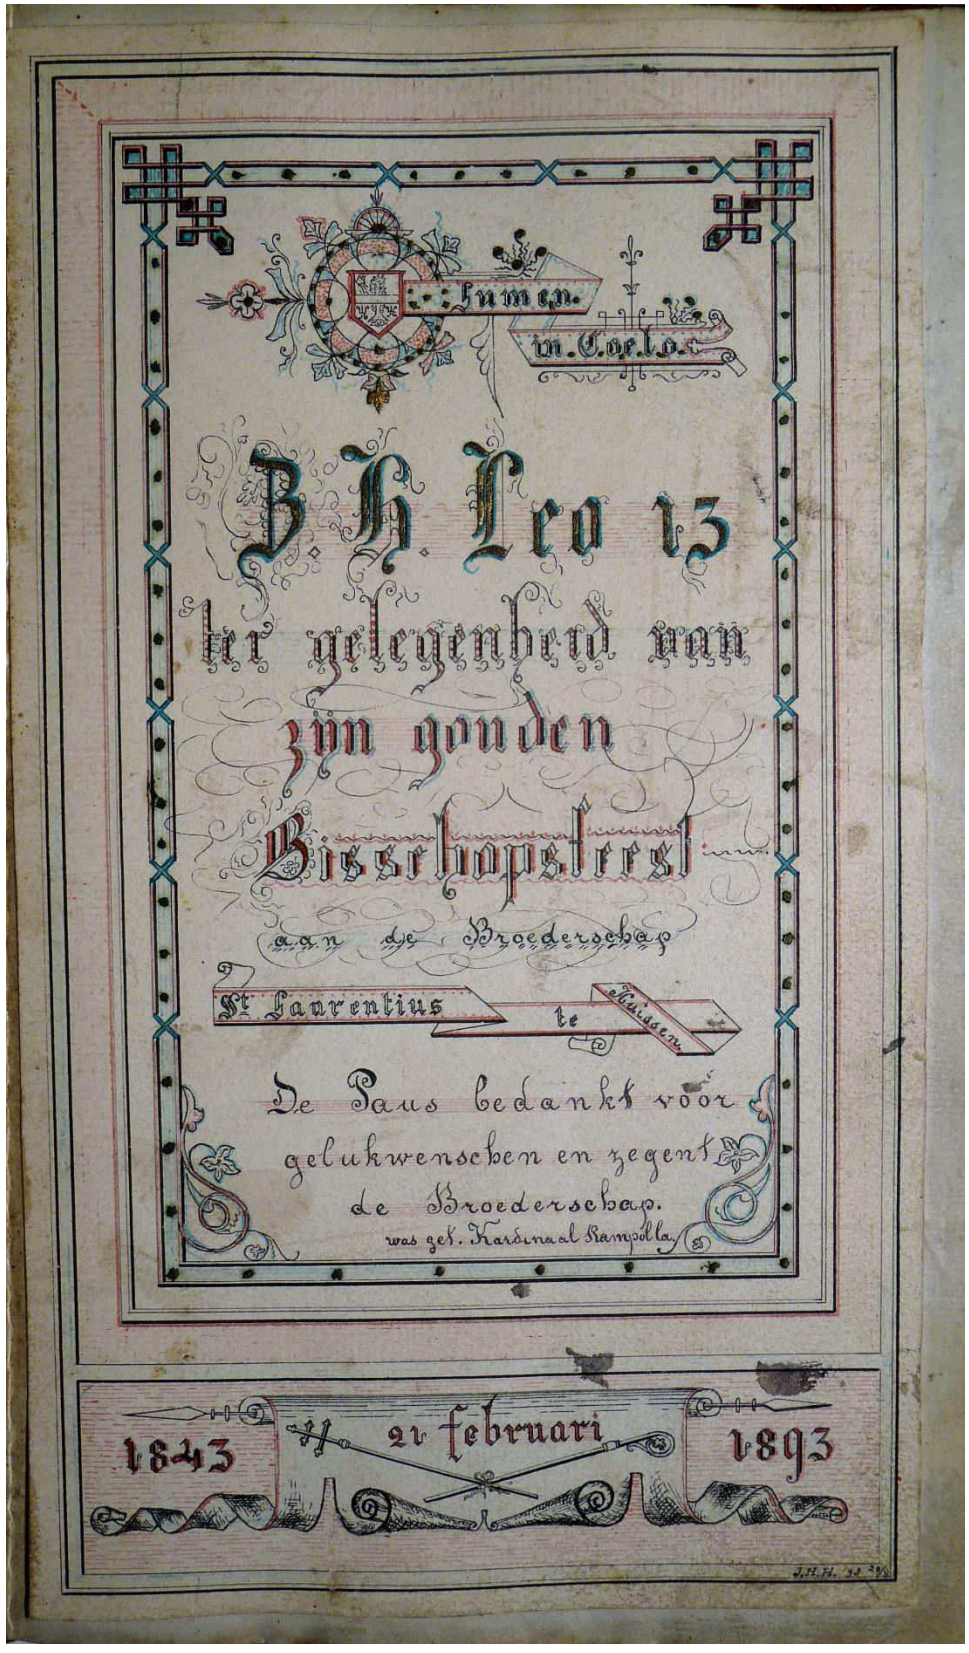 Lumen.
in. Coelo.
Z. H. Leo 13
ter gelegenheid van
zijn gouden
Bisschopsfeest
aan de Broederschap
St Laurentius te Huissen.
De Paus bedankt voor
gelukwenschen en zegent
de Broederschap.
was get. Kardinaal Rampolla
21 februari
1843 1893
J.H.H. 93